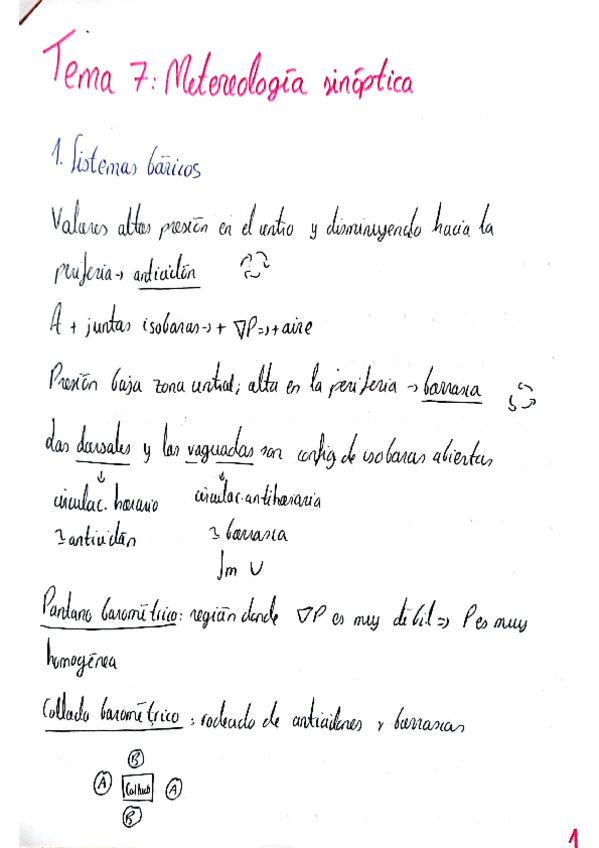 Tema 7: Metereología sinóptica
1. Sistemas báricos
Valores altos presión en el centro y disminuyendo hacia la
periferia → anticiclón
A + juntas isobaras → + ∇P => + aire
Presión baja zona central; alta en la periferia → borrasca
Las dorsales y las vaguadas son config de isobaras abiertas
↓ ↓
circulac. horario circulac. antihoraria
anticiclón borrasca
V
Pantano barométrico: región donde ∇P es muy débil => P es muy
homogénea
Collado barométrico: rodeado de anticiclones y borrascas
B
A Collado A
B
1